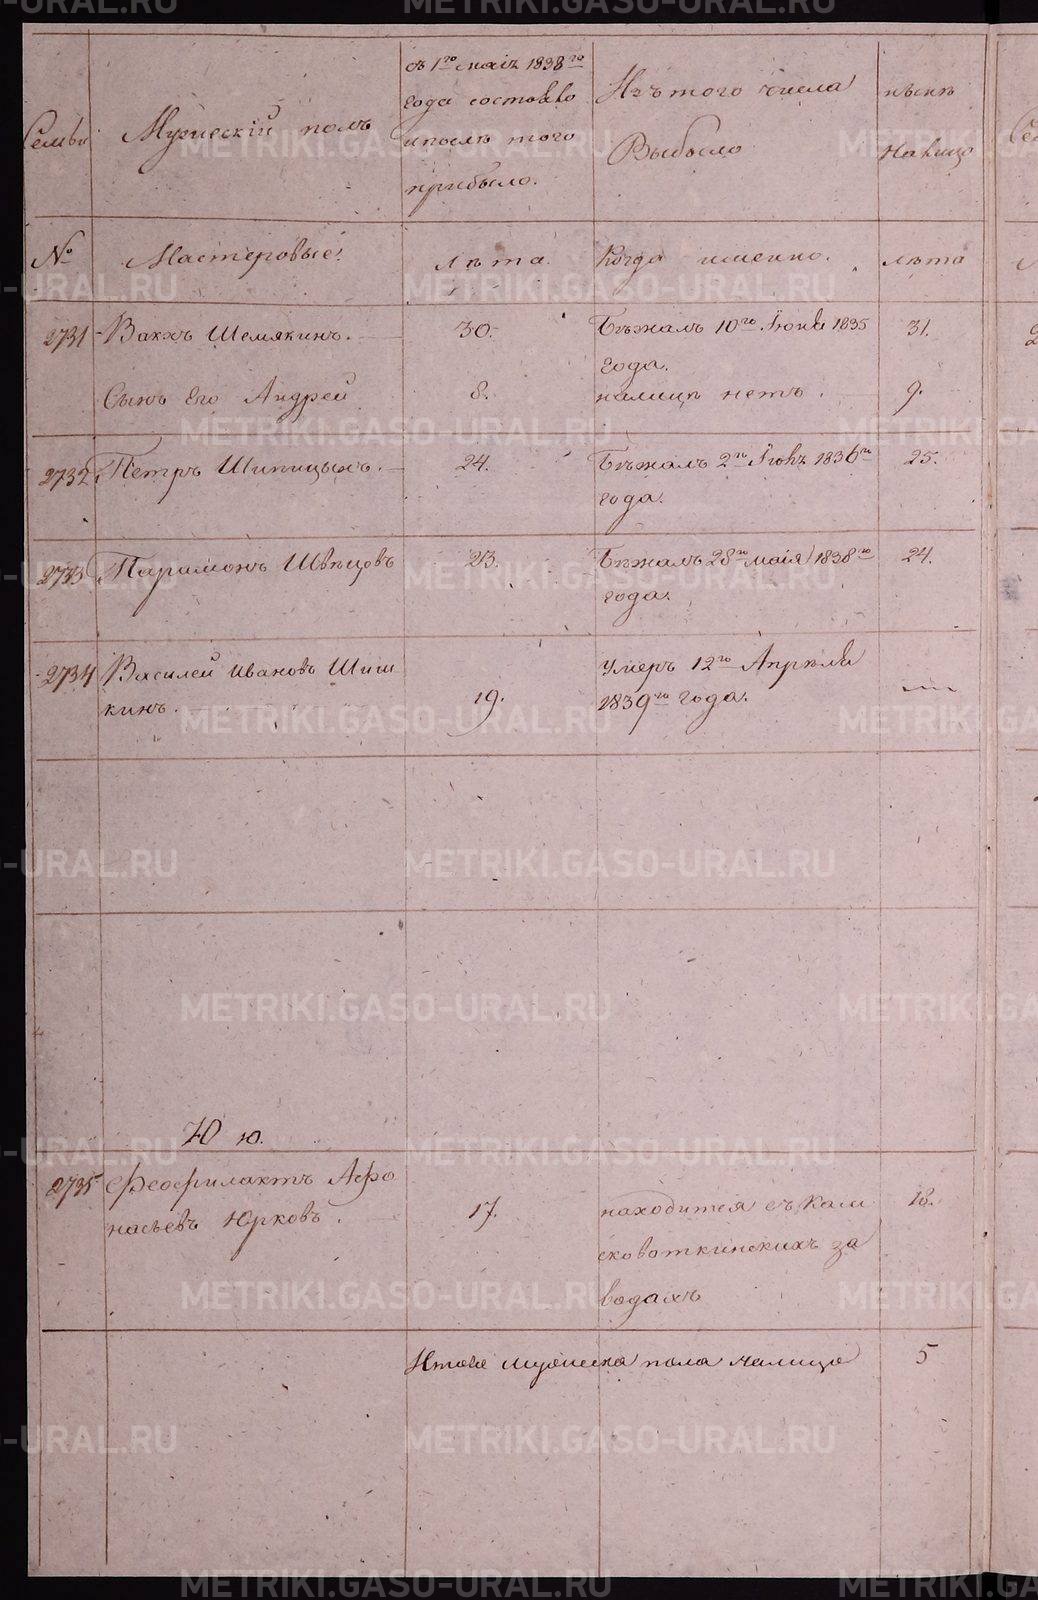 Семьи
Мужескій полъ
съ 1го маія 1838го
года состояло
и послѣ того
прибыло.
Изъ того числа
Выбыло
нынѣ
Налицо
№
Мастеровые.
лѣта.
Когда именно.
лѣта
2731
Вакхъ Шемякинъ.
30.
Бѣжалъ 10го Іюня 1835
года.
31.
Сынъ Его Андрей
8.
налицо нетъ.
9.
2732
Петръ Шипицынъ.
24.
Бѣжалъ 2го 1836го
года.
25.
2733
Парамонъ Швецовъ
23.
Бѣжалъ 28го маія 1838го
года.
24.
2734
Василей Ивановъ Шиш
кинъ.
19.
Умеръ 12го Апреля
1839го года.
Ю ю.
2735
Феофилактъ Афо
насьевъ Юрковъ.
17.
находится въ Кам
сковоткинскихъ за
водахъ
18.
Итого мужеска пола налицо
5
METRIKI.GASO-URAL.RU